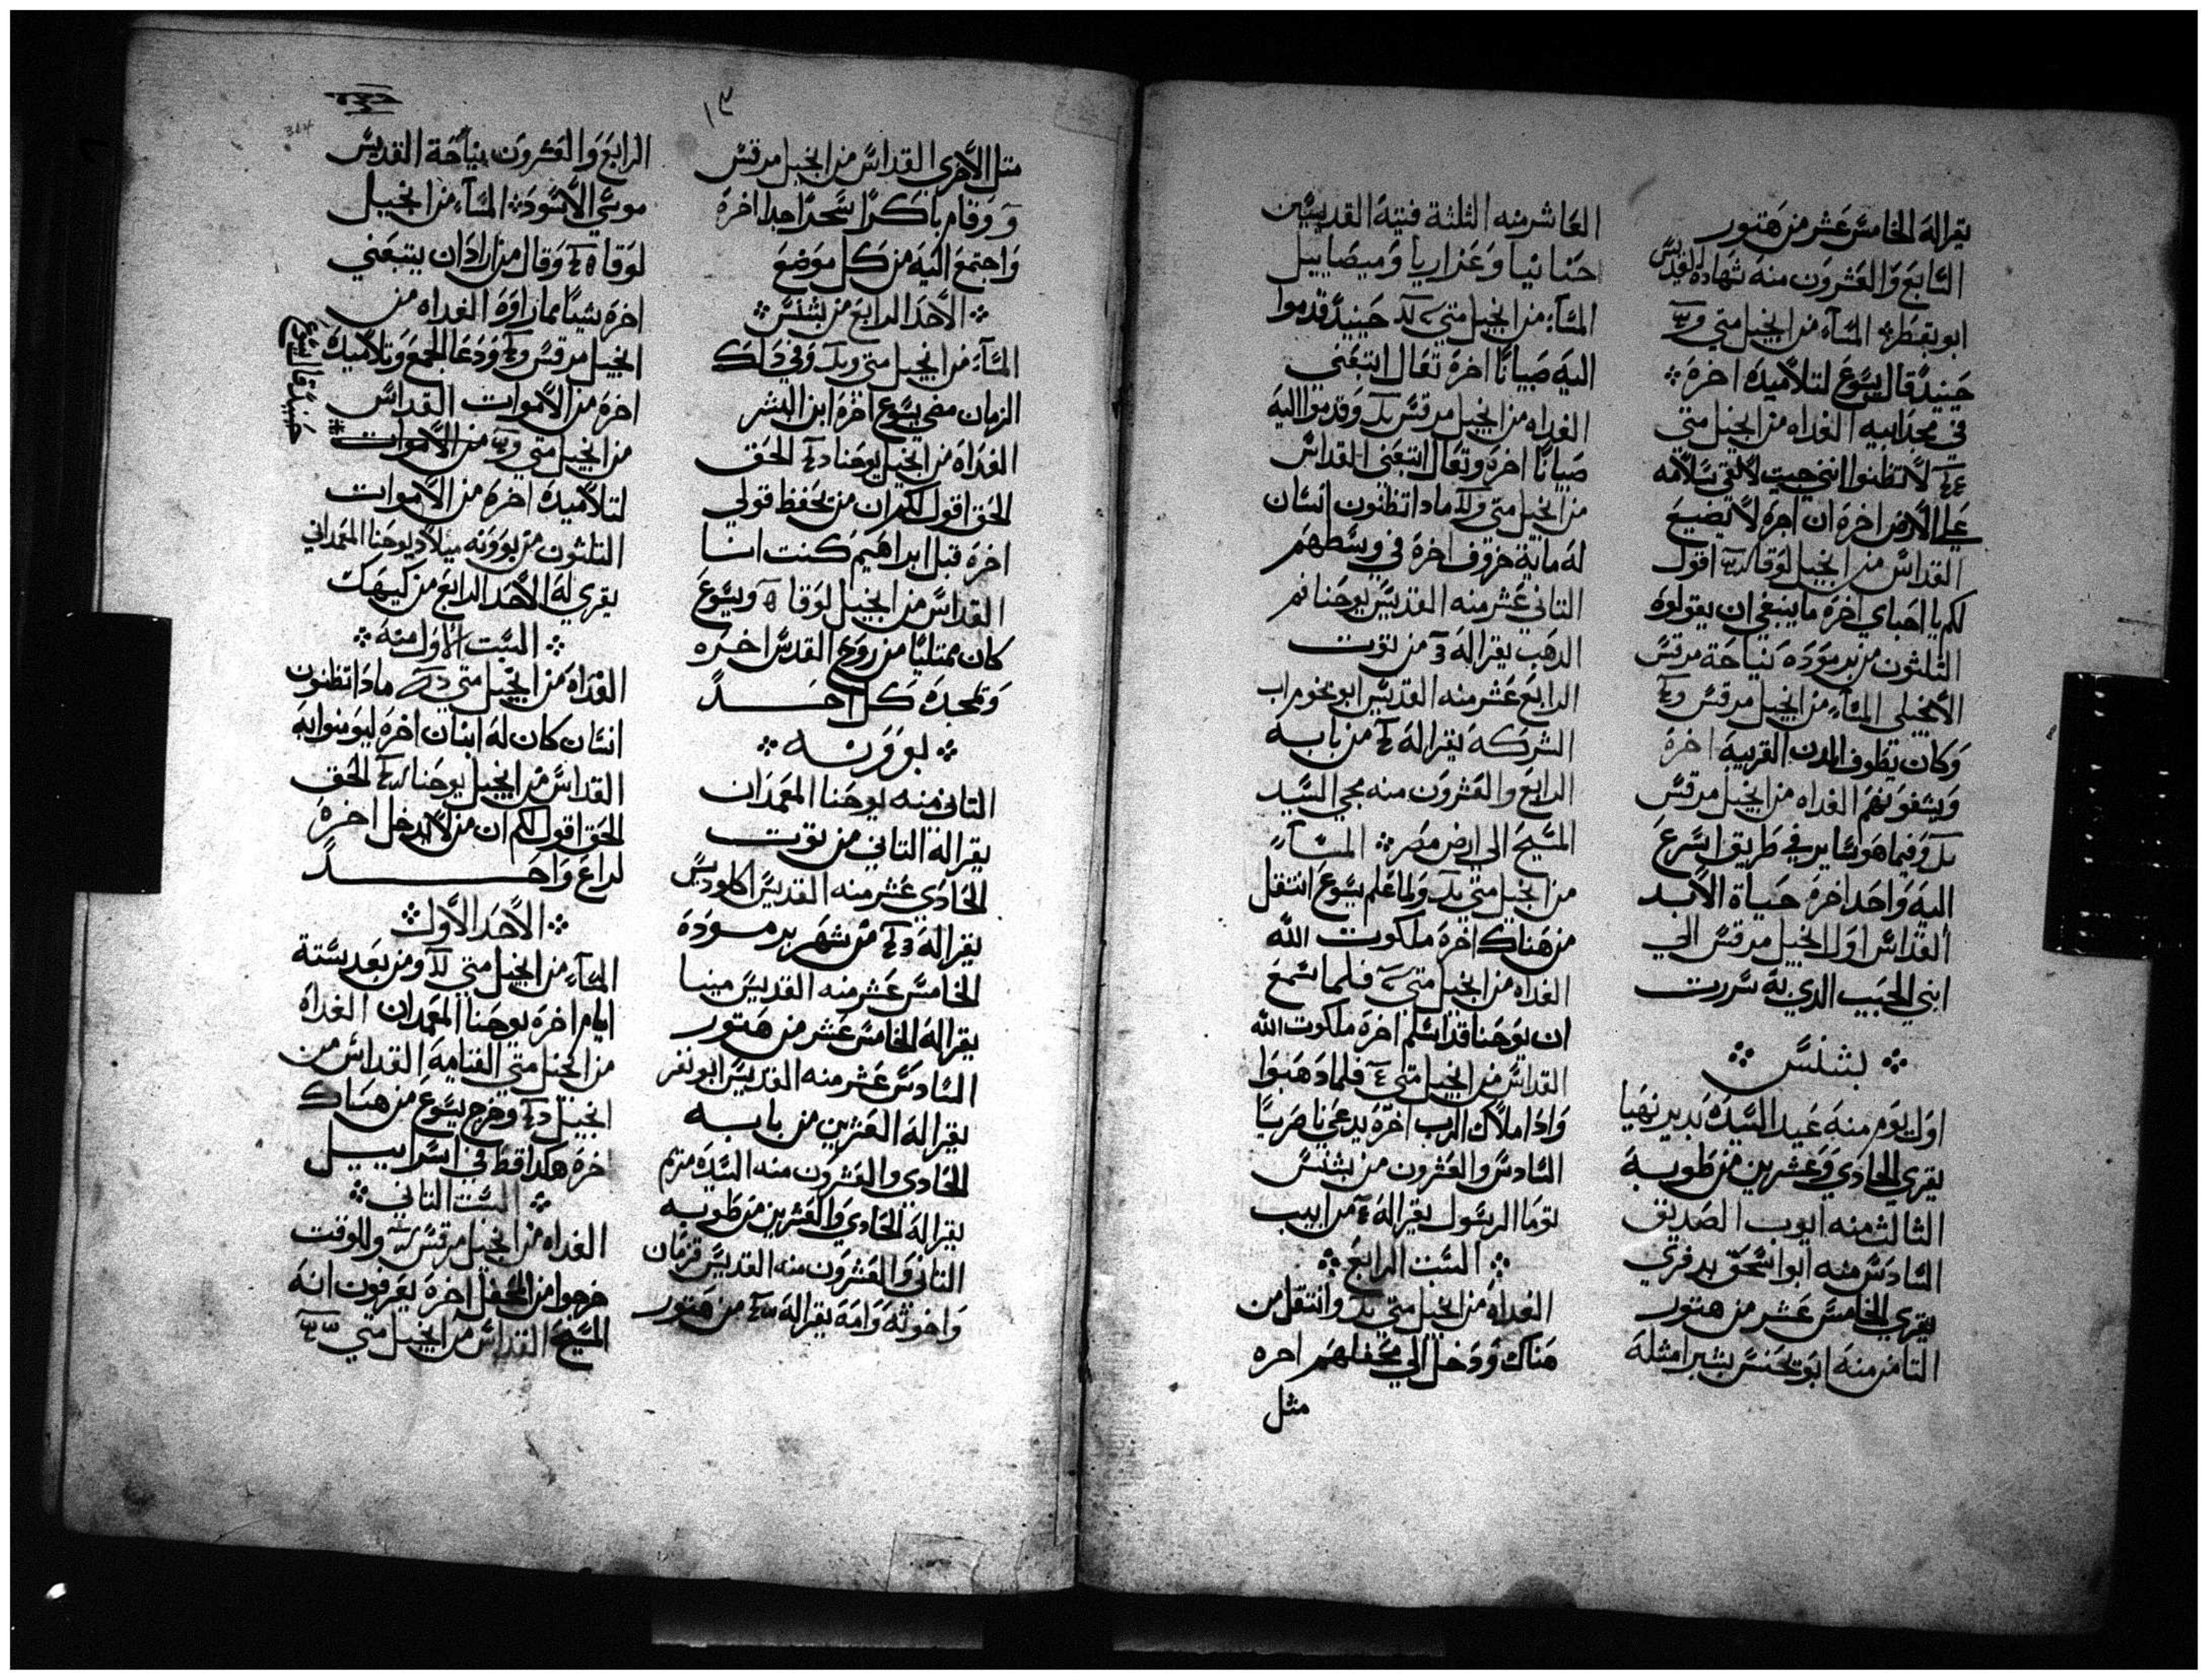 يقرا له الخامس عشر من هتور
السابع والعشرون منه شهادة القديس
ابو بقطر المسآء من انجيل متي
حينيد قال يسوع لتلاميده اخره
في مجد ابيه الغداه من انجيل متي
لا تظنوا انني جيت لالقي سلامه
علي الارض اخره ان اجره لا يضيع
القداس من انجيل لوقا اقول
لكم يا احباي اخره ما ينبغي ان يقولوه
الثلثون من برموده نياحة مرقس
الانجيلي المسآء من انجيل مرقس
وكان يطوف المدن القريبه اخره
ويشفونهم الغداه من انجيل مرقس
وفيما هو ساير في طريق اسرع
اليه واحد اخره حياة الابد
القداس اول انجيل مرقس الي
ابني الحبيب الذي به سررت
بشنس
اول يوم منه عيد السيده بدير نهيا
يقري الحادي وعشرين من طوبه
الثالث منه ايوب الصديق
السادس منه ابو اسحق بدفري
يقري الخامس عشر من هتور
التامن منه ابو يحنس بشبرا مثله
العاشر منه الثلثة فتية القديسين
حنانيا وعزاريا وميصاييل
المسآء من انجيل متي حينيد قدموا
اليه صبيانا اخره تعال اتبعني
الغداه من انجيل مرقس وقدموا اليه
صبيانا اخره وتعال اتبعني القداس
من انجيل متي مادا تظنون انسان
له ماية خروف اخره في وسطهم
التاني عشر منه القديس يوحنا فم
الدهب يقرا له من توت
الرابع عشر منه القديس ابو بخوم اب
الشركه يقرا له من بابه
الرابع والعشرون منه مجي السيد
المسيح الي ارض مصر المسآء
من انجيل متي ولما علم يسوع انتقل
من هناك اخره ملكوت الله
الغداه من انجيل متي فلما سمع
ان يوحنا قد اسلم اخره ملكوت الله
القداس من انجيل متي فلما دهبوا
وادا ملاك الرب اخره يدعي ناصريا
السادس والعشرون من بشنس
توما الرسول يقرا له من ابيب
السبت الرابع
الغداه من انجيل متي وانتقل من
هناك ودخل الي محفلهم اخره
مثل
١٣
متل الاخري القداس من انجيل مرقس
وقام باكرا سحرا جدا اخره
واجتمع اليه من كل موضع
الاحد الرابع من بشنس
المسآء من انجيل متي وفي دلك
الزمان مضي يسوع اخره ابن البشر
الغداه من انجيل يوحنا الحق
الحق اقول لكم ان من يحفظ قولي
اخره قبل ابراهيم كنت انا
القداس من انجيل لوقا ويسوع
كان ممتليا من روح القدس اخره
وتمجده كل احد
بوونه
التاني منه يوحنا المعمدان
يقرا له التاني من توت
الحادي عشر منه القديس اكلوديس
يقرا له من شهر برموده
الخامس عشر منه القديس مينا
يقرا له الخامس عشر من هتور
السادس عشر منه القديس ابو نفر
يقرا له العشرين من بابه
الحادي والعشرون منه السيده مريم
يقرا له الحادي والعشرين من طوبه
التاني والعشرون منه القديس قزمان
واخوته وامه يقرا له من هتور
الرابع والعشرون نياحة القديس
موسي الاسود المسآء من انجيل
لوقا وقال من اراد ان يتبعني
اخره شييا مما راوه الغداه من
انجيل مرقس ودعا الجمع وتلاميده
اخره من الاموات القداس
من انجيل متي من الاموات
حينيد قال يسوع
لتلاميده اخره من الاموات
التلثون من بوونه ميلاد يوحنا المعمداني
يقري له الاحد الرابع من كيهك
السبت الاول منه
الغداه من انجيل متي مادا تظنون
انسان كان له ابنان اخره ليومنوا به
القداس من انجيل يوحنا الحق
الحق اقول لكم ان من لا يدخل اخره
لراع واحد
الاحد الاول
المسآء من انجيل متي ومن بعد ستة
ايام اخره يوحنا المعمدان الغداه
من انجيل متي القيامه القداس من
انجيل وخرج يسوع من هناك
اخره هكدا قط في اسراييل
السبت التاني
الغداه من انجيل مرقس وللوقت
خرجوا من المحفل اخره يعرفون انه
المسيح القداس من انجيل متي